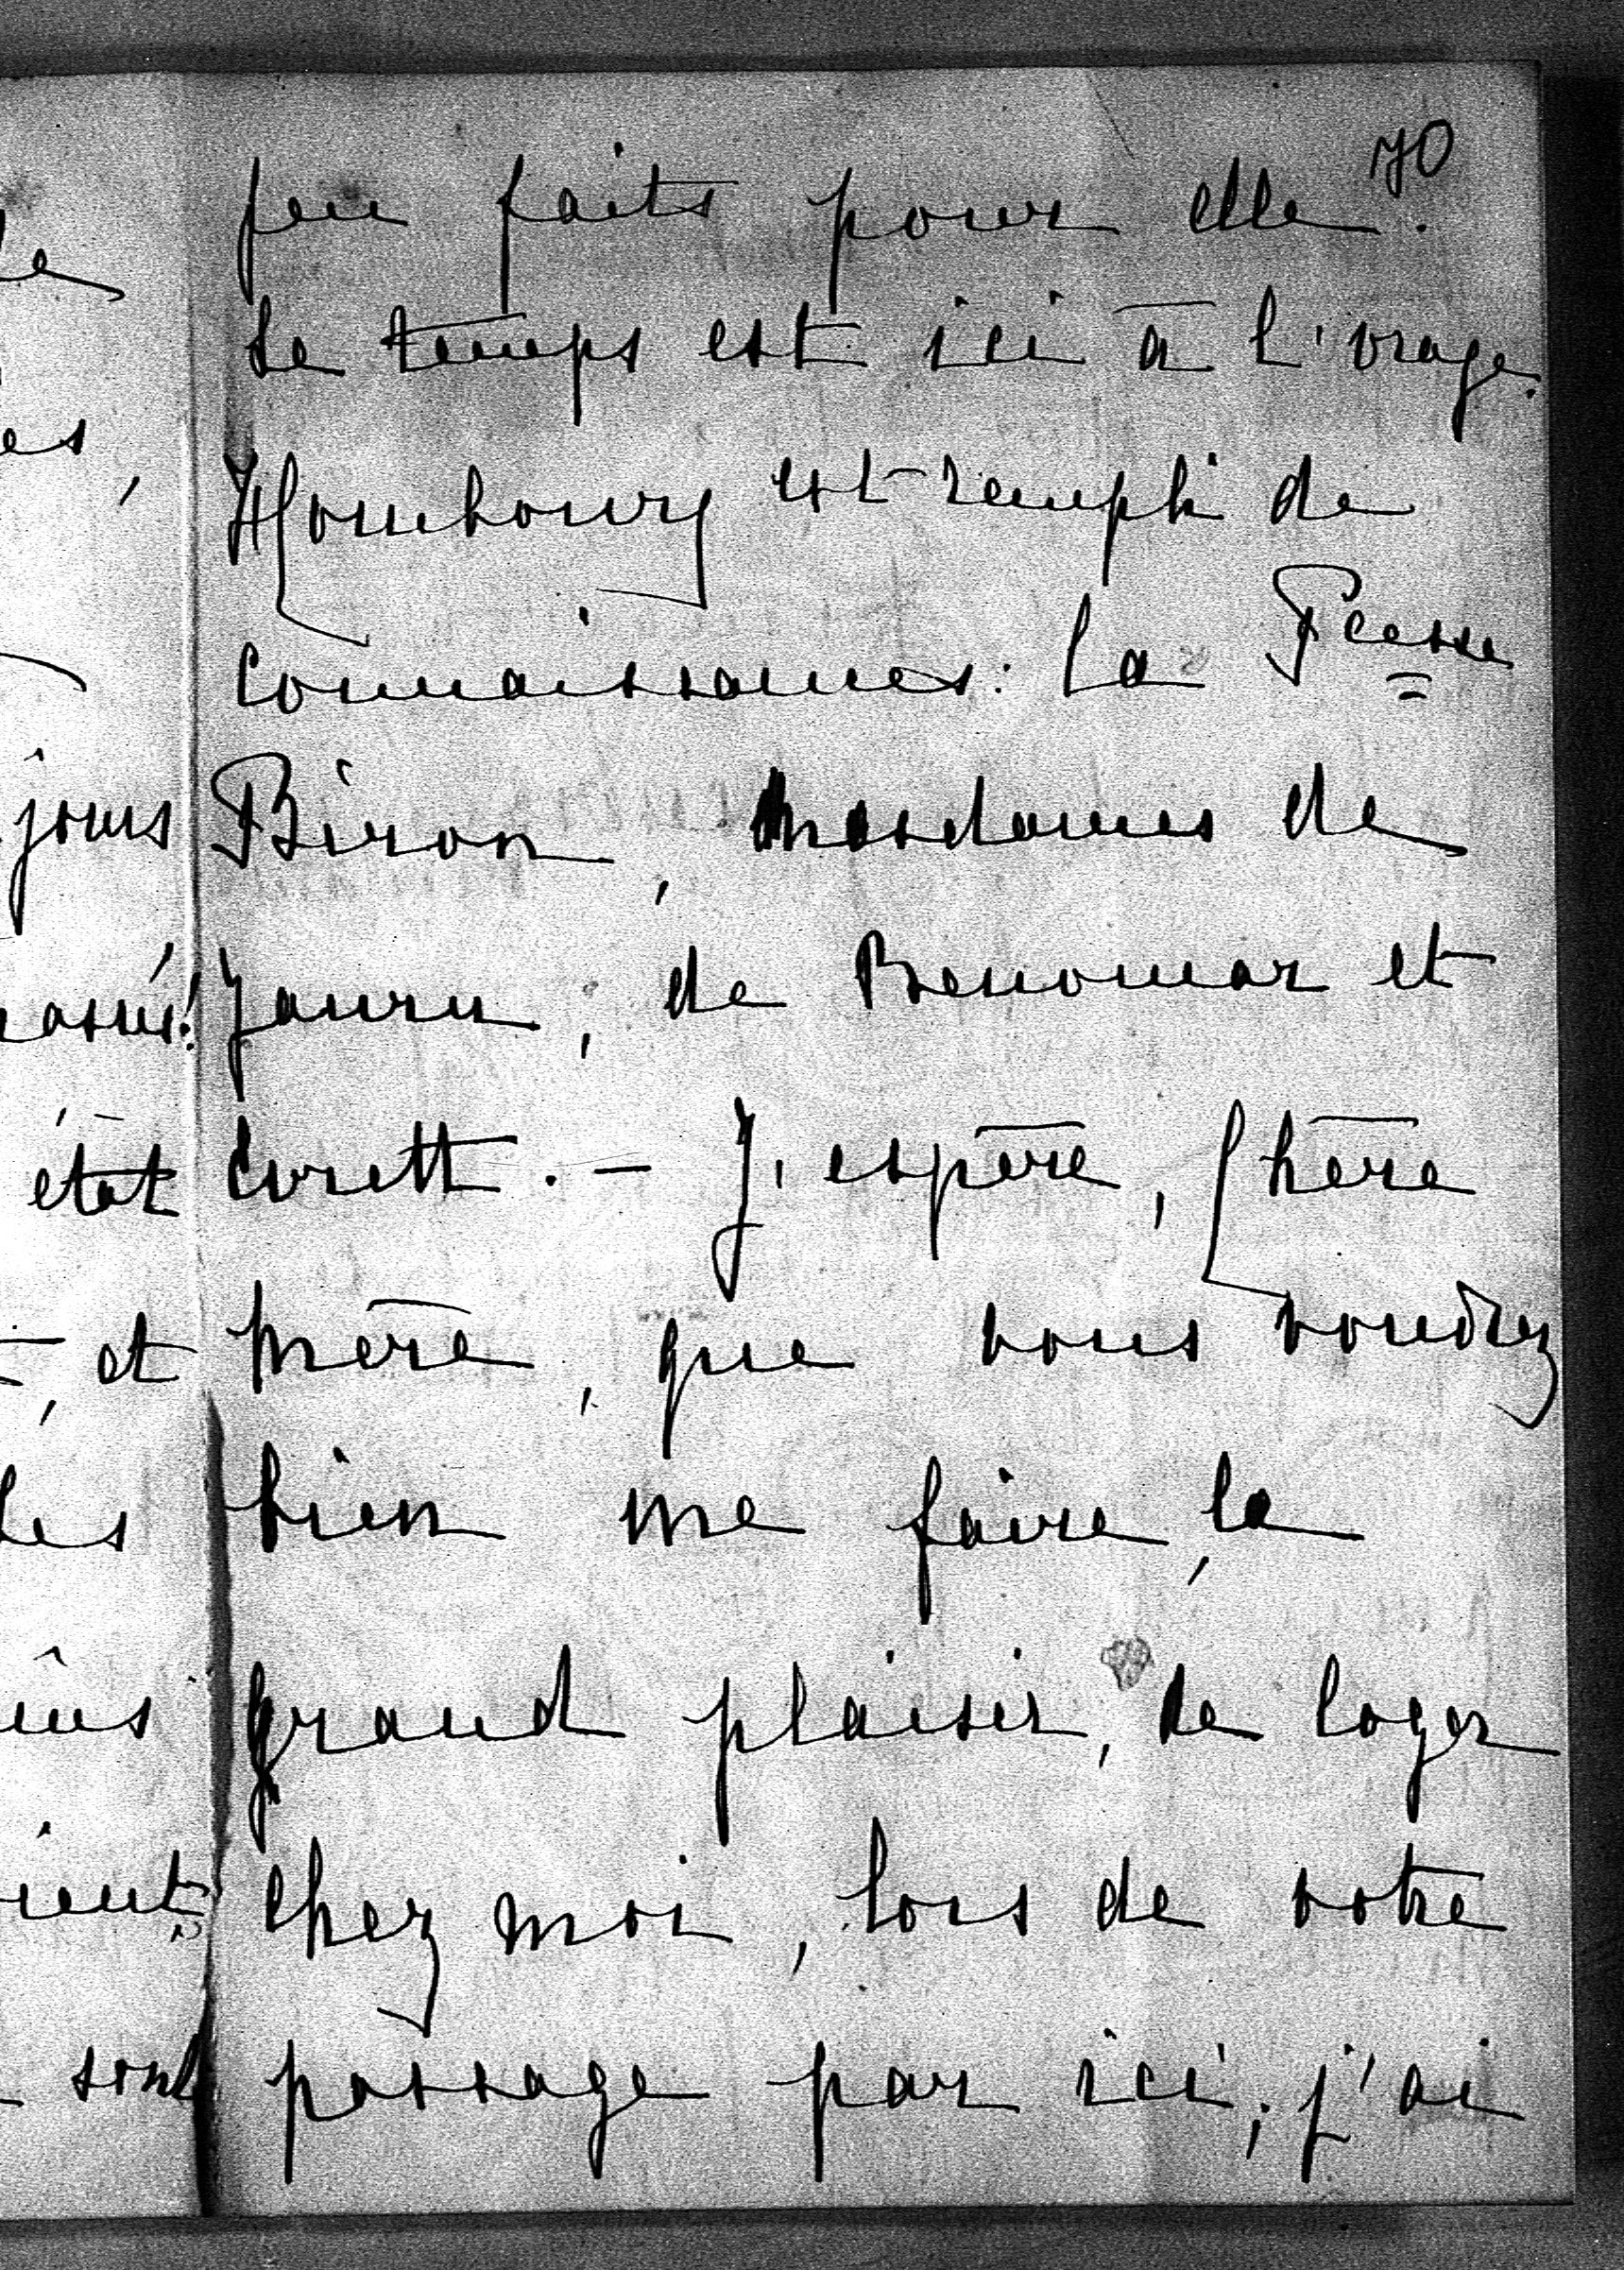 70
peu faits pour elle.
Le temps est ici à l'orage.
Hombourg est rempli de
connaissances: la Pcesse
Biron, Mesdames de
Jauru, de Benomar et
Corett. — J'espère, Chère
Mère, que vous voudrez
bien me faire, le
grand plaisir, de loger
chez moi, lors de votre
passage par ici; j'ai
jours
état
et
sont